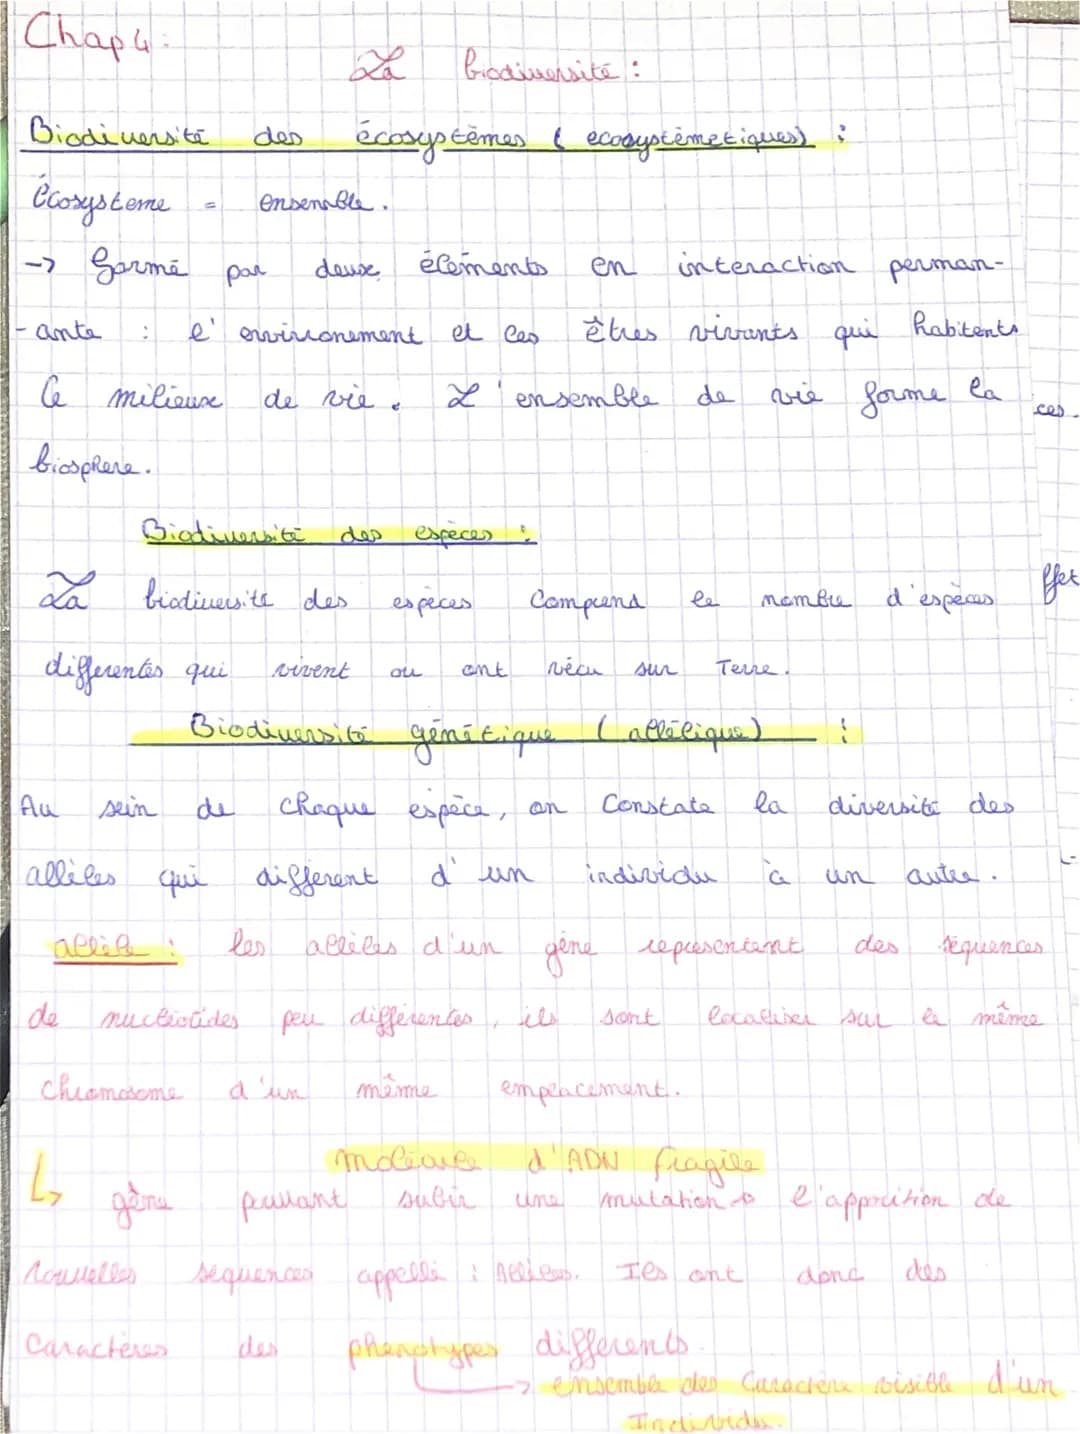 Chap 4:
La biodiversité :
Biodiversité des écosystèmes ( ecosystèmetiques) :
écosysteme = ensemble.
-> formé par deux élements en interaction perman-
-ante : l'environement et les êtres vivants qui habitents
Ce milieux de vie. L'ensemble de vie forme la
ces.
biosphere.
Biodiversité des espèces :
La biodiversité des espèces Comprend le nombre d'espèces
ffet
differentes qui vivent ou ont vécu sur Terre.
Biodiversité génétique ( allélique) :
Au sein de Chaque espèce, on Constate la diversité des
allèles qui different d'un individu à un autre.
allèle : les allèles d'un gène représentent des séquences
de nucléotides peu différentes, ils sont localiser sur le même
Chromosome d'un même emplacement.
Molécule d'ADN fragile
↳ gène pouvant subir une mutation -> l'apparition de
nouvelles séquences appellé : Allèles. Ils ont donc des
Caractères des phenotypes differents.
-> ensemble des Caractère visible d'un
Individu.